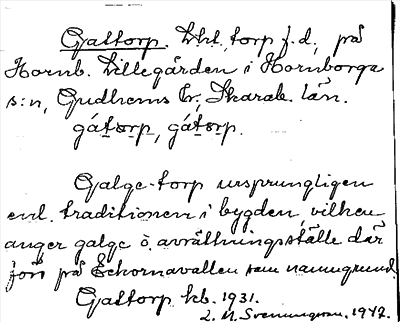 Galtorp. Lht, torp f.d., på
Hornb. Lillegården i Hornborga
s:n, Gudhems hr, Skarab. län.
gátorp, gátorp.
Galge-torp ursprungligen
enl. traditionen i bygden, vilken
anger galge o. avrättningsställe där
förr på Ekornavallen som namngrund.
Galtorp kb. 1931.
L. M. Svenungsson. 1947.